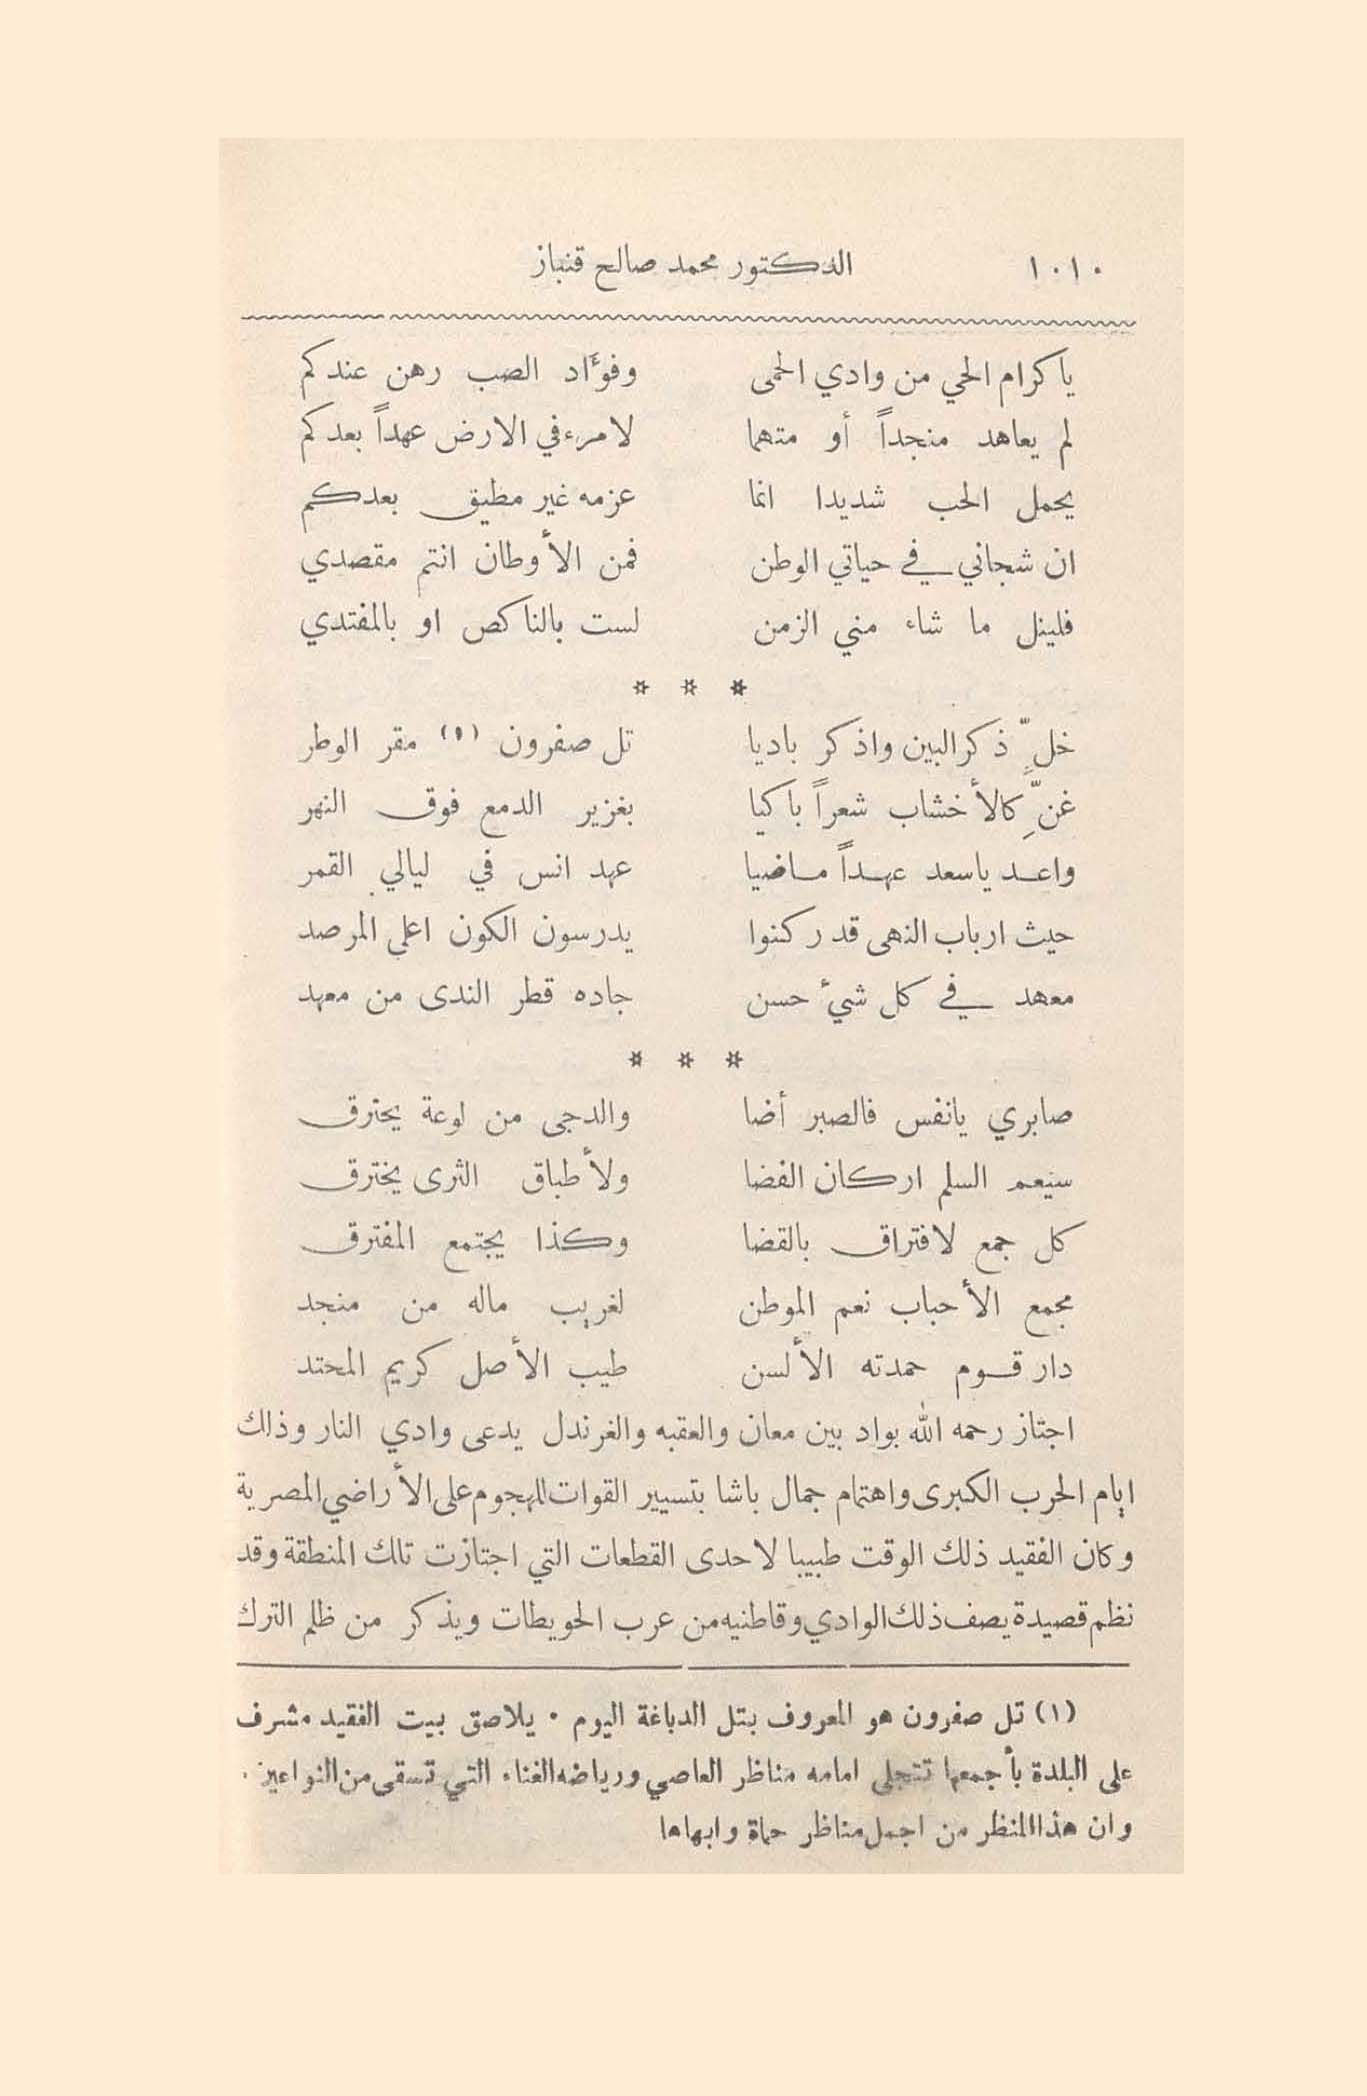 ١٠١٠ الدكتور محمد صالح قنباز
ياكرام الحي من وادي الحمى وفؤاد الصب رهن عندكم
لم يعاهد منجداً أو متهما لامرء في الارض عهداً بعدكم
يحمل الحب شديدا انما عزمه غير مطيق بعدكم
ان شجاني في حياتي الوطن فمن الأوطان انتم مقصدي
فلينل ما شاء مني الزمن لست بالناكص او بالمفتدي
* * *
خلِّ ذكر البين واذكر باديا تل صفرون (١) مقر الوطر
غنِّ كالأخشاب شعراً باكيا بغزير الدمع فوق النهر
واعد ياسعد عهداً ماضيا عهد انس في ليالي القمر
حيث ارباب النهى قد ركنوا يدرسون الكون اعلى المرصد
معهد في كل شيء حسن جاده قطر الندى من معهد
* * *
صابري يانفس فالصبر أضا والدجى من لوعة يحترق
سيعم السلم اركان الفضا ولأطباق الثرى يخترق
كل جمع لافتراق بالقضا وكذا يجتمع المفترق
مجمع الأحباب نعم الموطن لغريب ماله من منجد
دار قوم حمدته الألسن طيب الأصل كريم المحتد
اجتاز رحمه الله بواد بين معان والعقبه والغرندل يدعى وادي النار وذلك
ايام الحرب الكبرى واهتمام جمال باشا بتسيير القوات للهجوم على الأراضي المصرية
وكان الفقيد ذلك الوقت طبيبا لاحدى القطعات التي اجتازت تلك المنطقة وقد
نظم قصيدة يصف ذلك الوادي وقاطنيه من عرب الحويطات ويذكر من ظلم الترك
(١) تل صفرون هو المعروف بتل الدباغة اليوم . يلاصق بيت الفقيد مشرف
على البلدة بأجمعها تتجلى امامه مناظر العاصي ورياضه الغناء التي تسقى من النواعير .
وان هذا المنظر من اجمل مناظر حماة وابهاها